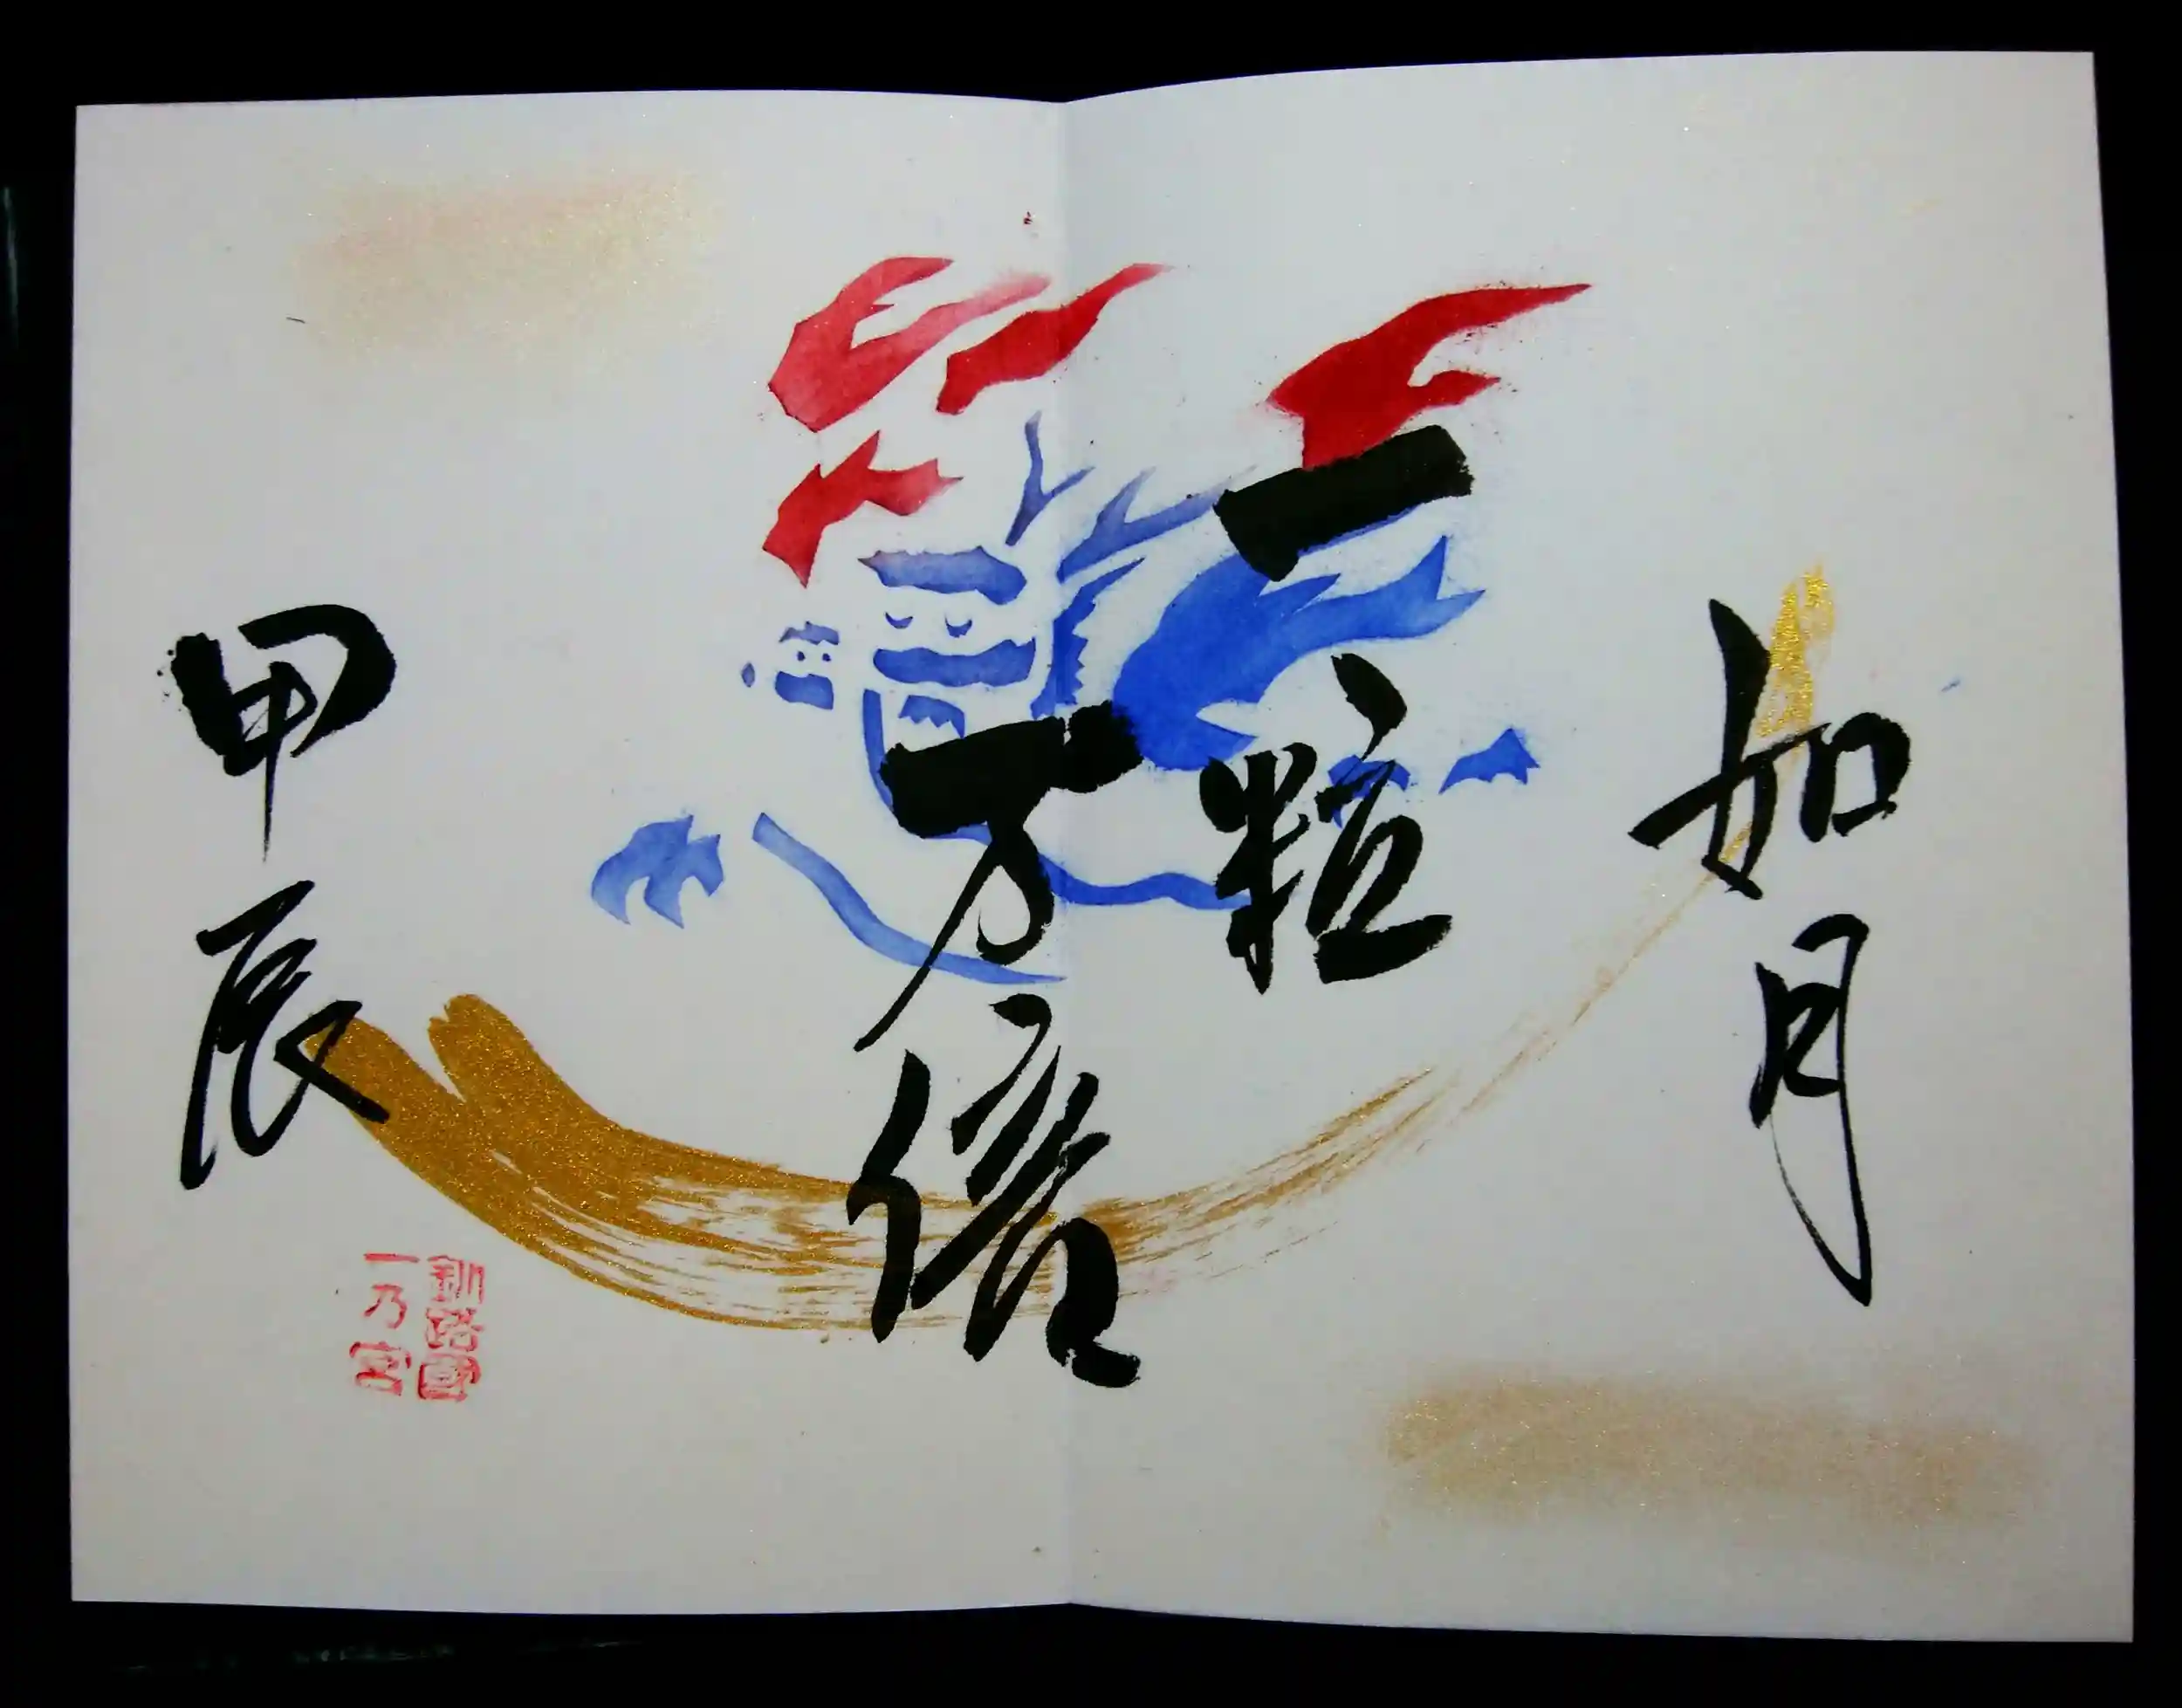 如月
一粒
万倍
甲辰
釧路國
一乃宮